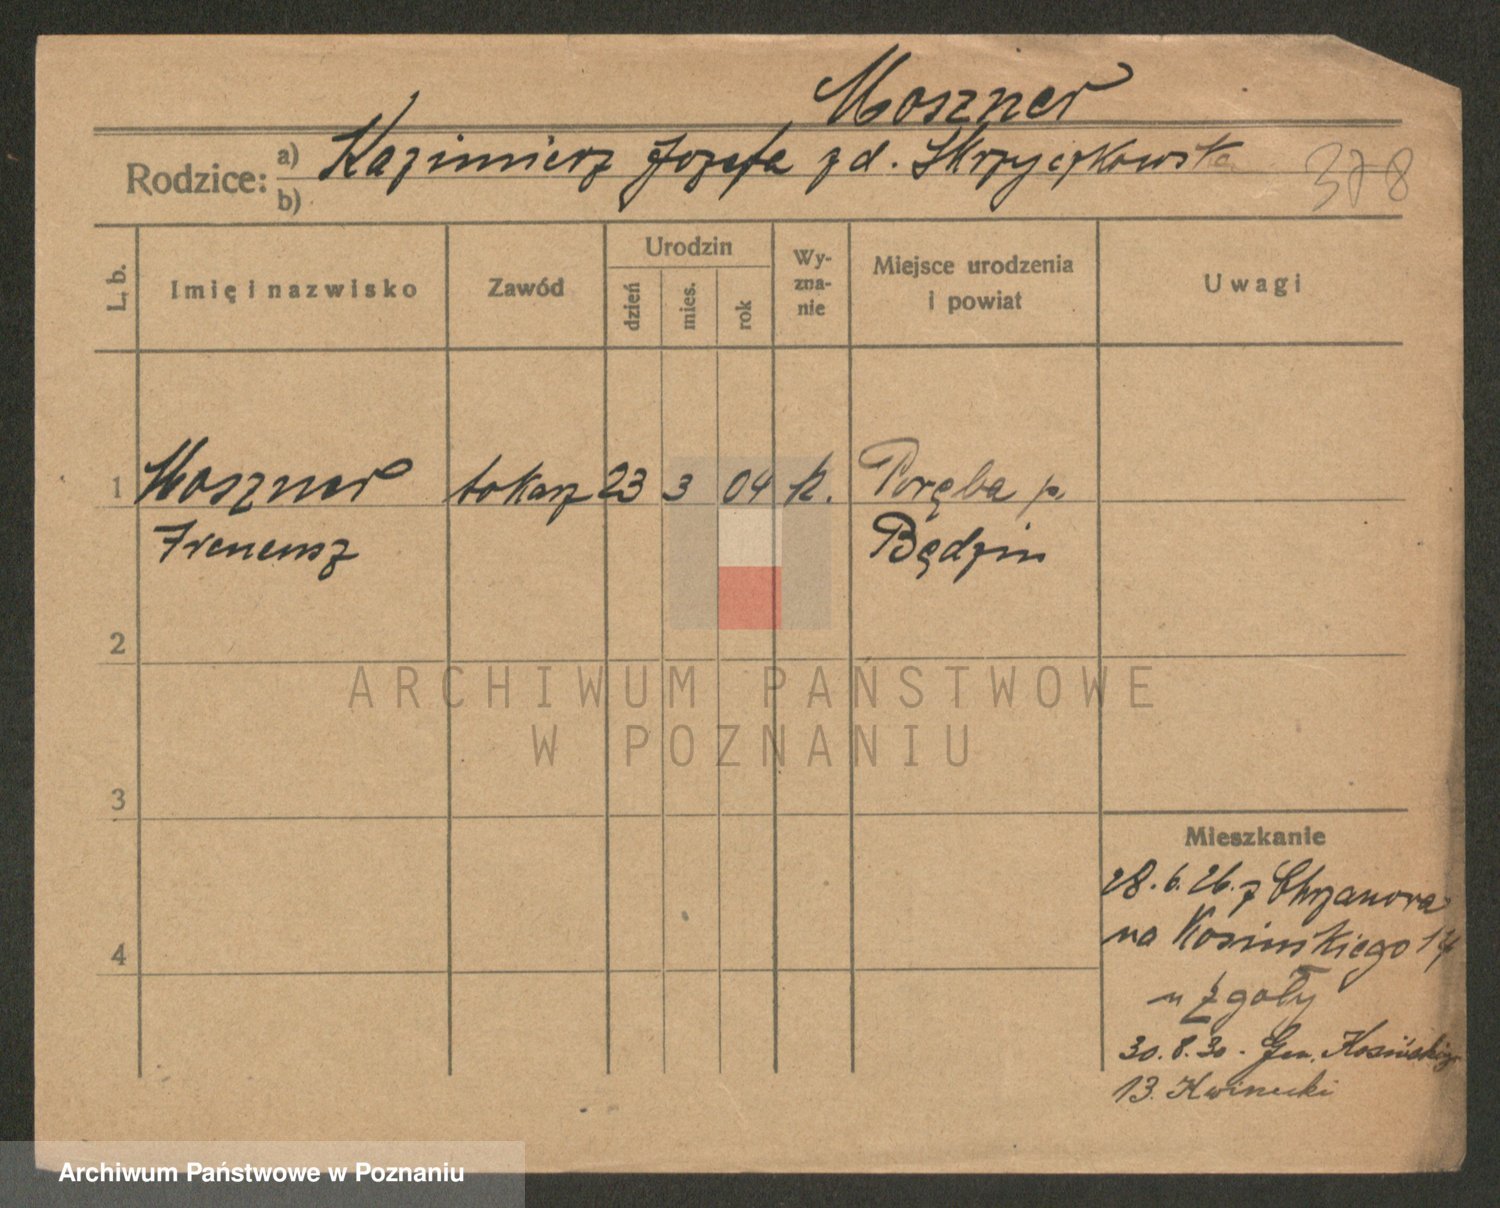 Moszner
Rodzice: a) Kazimierz Józefa z d. Skrzyczkowska
b)
378
L. b.
Imię i nazwisko
Zawód
Urodzin
dzień
mies.
rok
Wy-
zna-
nie
Miejsce urodzenia
i powiat
Uwagi
1 Moszner tokarz 23 3 04 k. Poręba p.
Ireneusz Będzin
2
3
4
Mieszkanie
28.6.26. z Chrzanowa
na Kosinskiego
u Zgoły
30.8.30. Gen. Kosińskiego
13. Kwinecki
ARCHIWUM PAŃSTWOWE
W POZNANIU
Archiwum Państwowe w Poznaniu